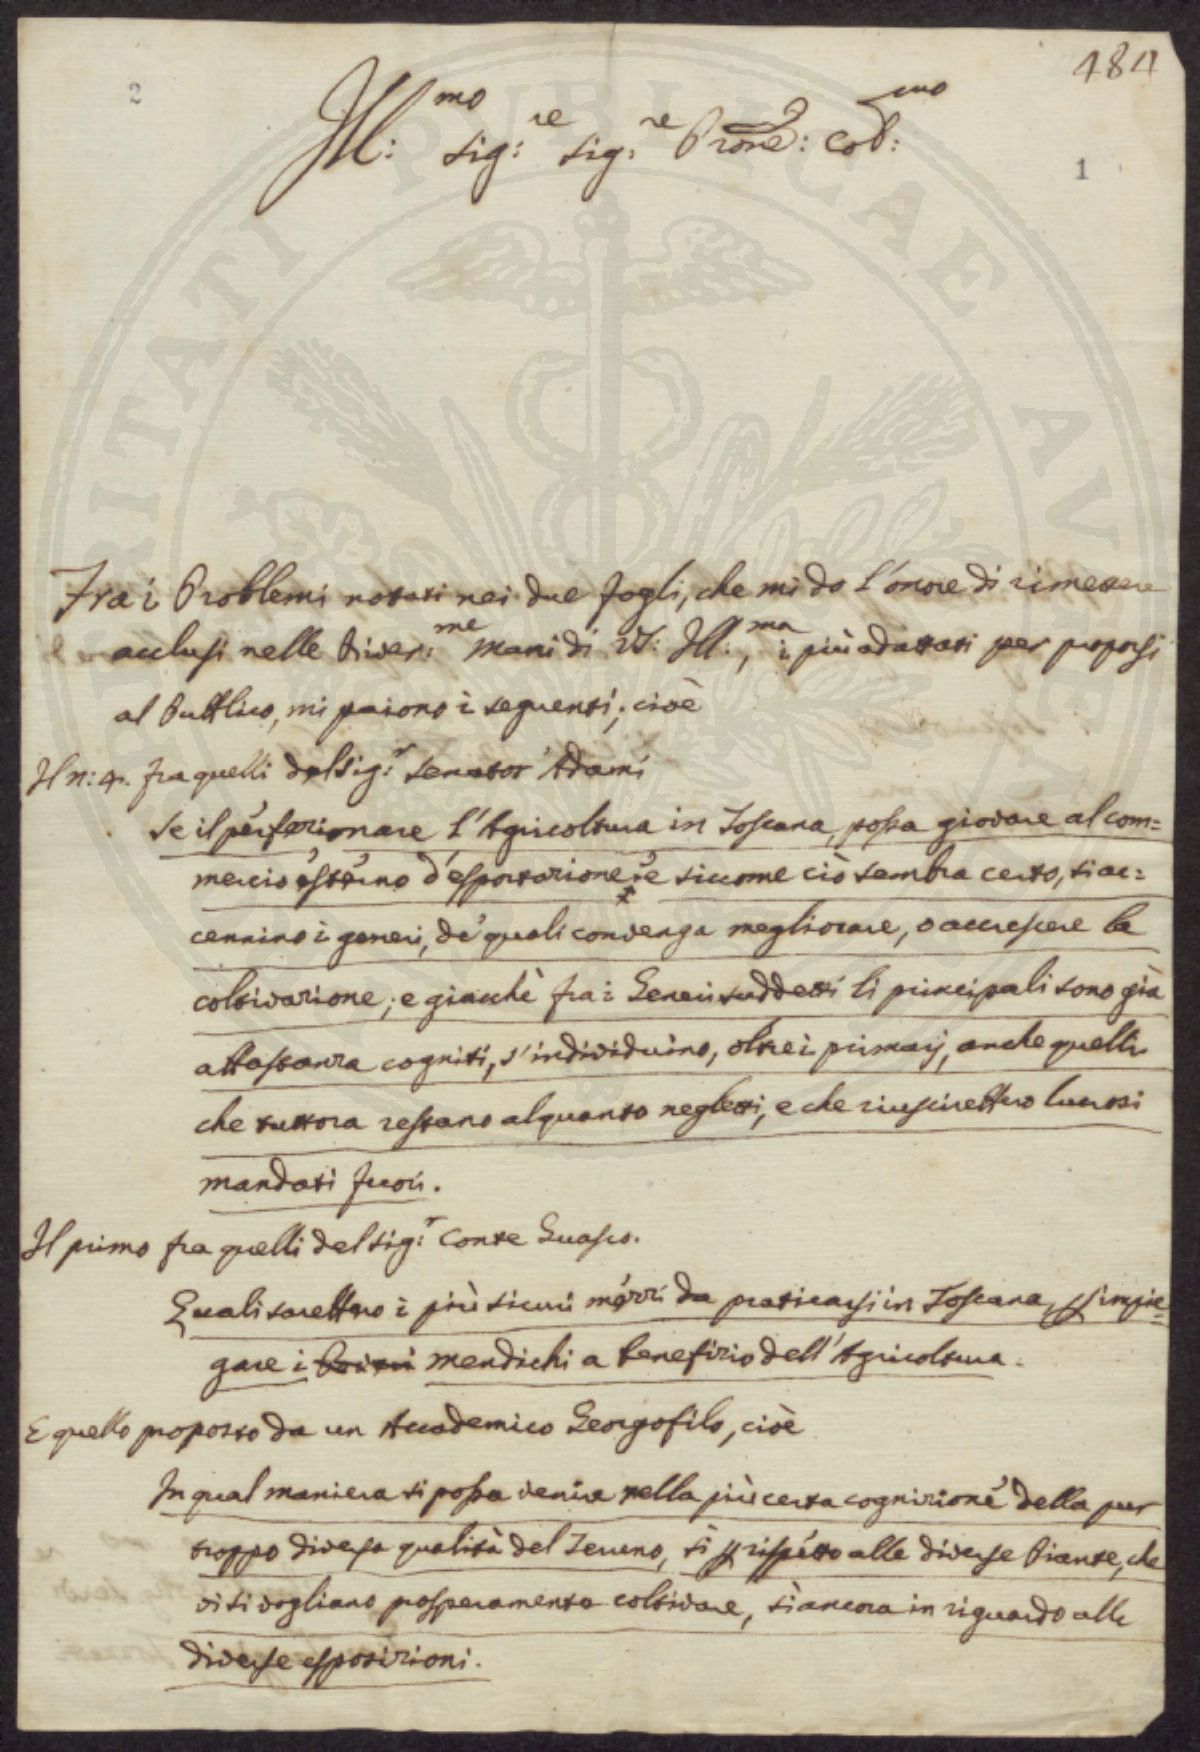 484
2
1
Ill:mo Sig:re Sig:re Prone: Col:mo
Fra i Problemi notati nei due fogli, che mi do l'onore di rimettere
acclusi nelle River:me mani di VS: Ill:ma, i più adattati per proporsi
al Pubblico, mi paiono i seguenti; cioè
Il n: 4. fra quelli del Sig:r Senator Adami
Se il perfezionare l'Agricoltura in Toscana, possa giovare al com=
mercio esterno d'esportazione: e siccome ciò sembra certo, si ac=
cennino i generi, de' quali convenga megliorare, o accrescere la
coltivazione; e giacchè fra i Generi suddetti li principali sono già
abbastanza cogniti, s'individuino, oltre i primarj, anche quelli
che tuttora restano alquanto negletti, e che riuscirebbero lucrosi
mandati fuori.
Il primo fra quelli del Sig:r Conte Guasco.
Quali sarebbero i più sicuri mezzi da praticarsi in Toscana, p impie=
gare i mendichi a benefizio dell'Agricoltura.
E quello proposto da un Accademico Georgofilo, cioè
In qual maniera si possa venire nella più certa cognizione della pur
troppo diversa qualità del Terreno, sì p rispetto alle diverse Piante, che
vi si vogliano prosperamente coltivare, sì ancora in riguardo alle
diverse esposizioni.
PUBLICAE